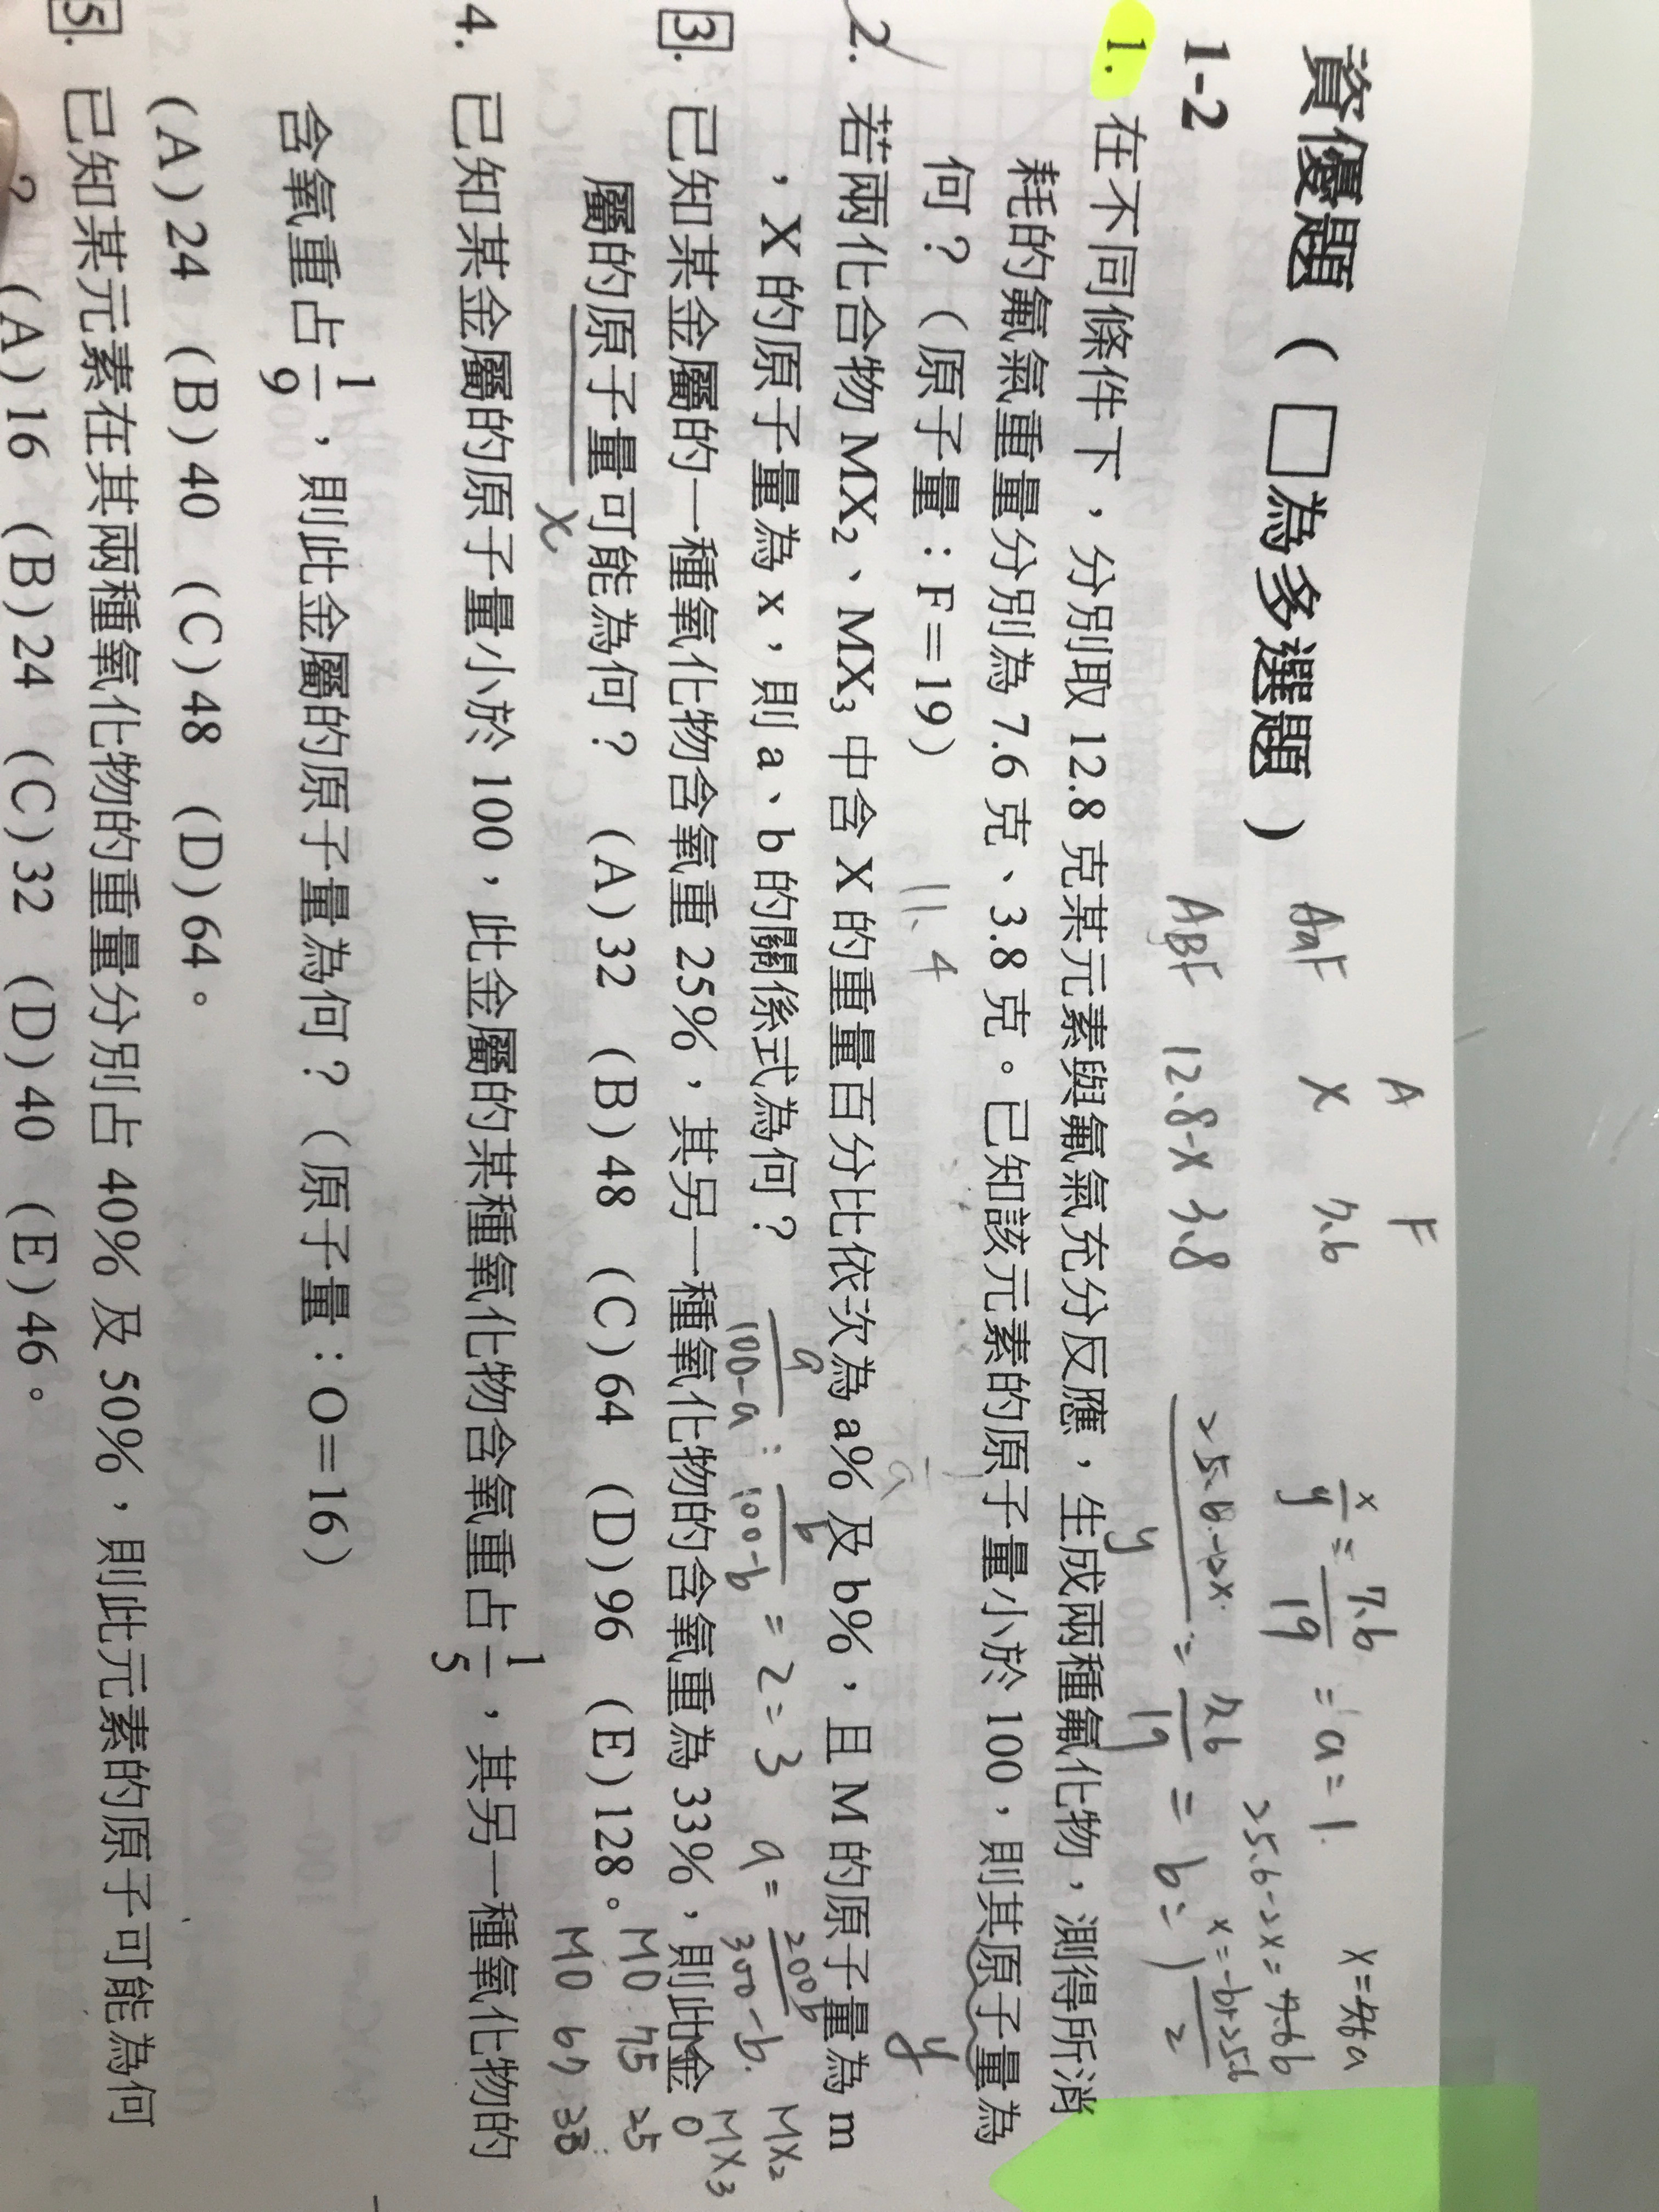 資優題（□為多選題）
1-2
1. 在不同條件下，分別取 12.8 克某元素與氟氣充分反應，生成兩種氟化物，測得所消
耗的氟氣重量分別為 7.6 克、3.8 克。已知該元素的原子量小於 100，則其原子量為
何？（原子量：F＝19）
11.4
y
y
2. 若兩化合物 MX₂、MX₃ 中含 X 的重量百分比依次為 a% 及 b%，且 M 的原子量為 m
，X 的原子量為 x，則 a、b 的關係式為何？
a/100-a : b/100-b = 2:3 a = 200b/300-b
MX₂
MX₃
3. 已知某金屬的一種氧化物含氧重 25%，其另一種氧化物的含氧重為 33%，則此金
屬的原子量可能為何？ (A)32 (B)48 (C)64 (D)96 (E)128。
x
O
MO 75 25
MO 67 33
4. 已知某金屬的原子量小於 100，此金屬的某種氧化物含氧重占 1/5，其另一種氧化物的
含氧重占 1/9，則此金屬的原子量為何？（原子量：O＝16）
(A)24 (B)40 (C)48 (D)64。
5. 已知某元素在其兩種氧化物的重量分別占 40% 及 50%，則此元素的原子可能為何
？ (A)16 (B)24 (C)32 (D)40 (E)46。
A F
AaF X 7.6
ABF 12.8-X 3.8
x/y = 7.6/19 = a = 1